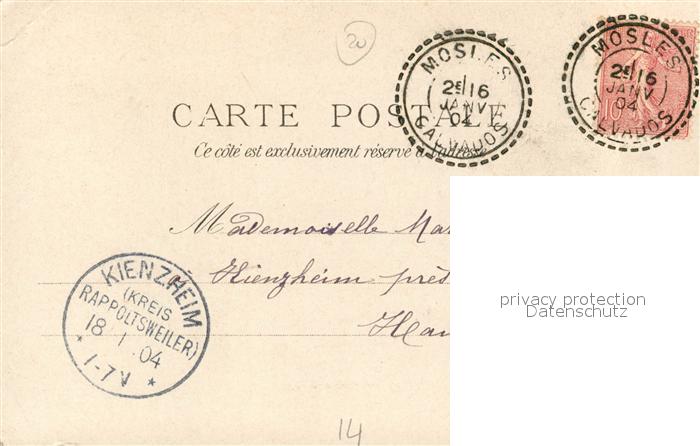 20
MOSLES
2E 16
JANV
04
CALVADOS
MOSLES
2E 16
JANV
04
CALVADOS
10
CARTE POSTALE
Ce côté est exclusivement réservé à l'adresse
Mademoiselle Mar
Kienzheim près
Hau
KIENZHEIM
(KREIS
RAPPOLTSWEILER)
18 1 04
* 1-7V *
privacy protection
Datenschutz
14